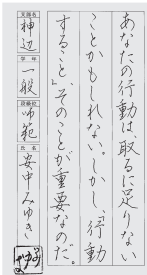 あなたの行動は取るに足りない
ことかもしれない。しかし、「行動
すること」、そのことが重要なのだ。
支部名
神辺
学年
一般
段級位
師範
氏名
安中みゆき